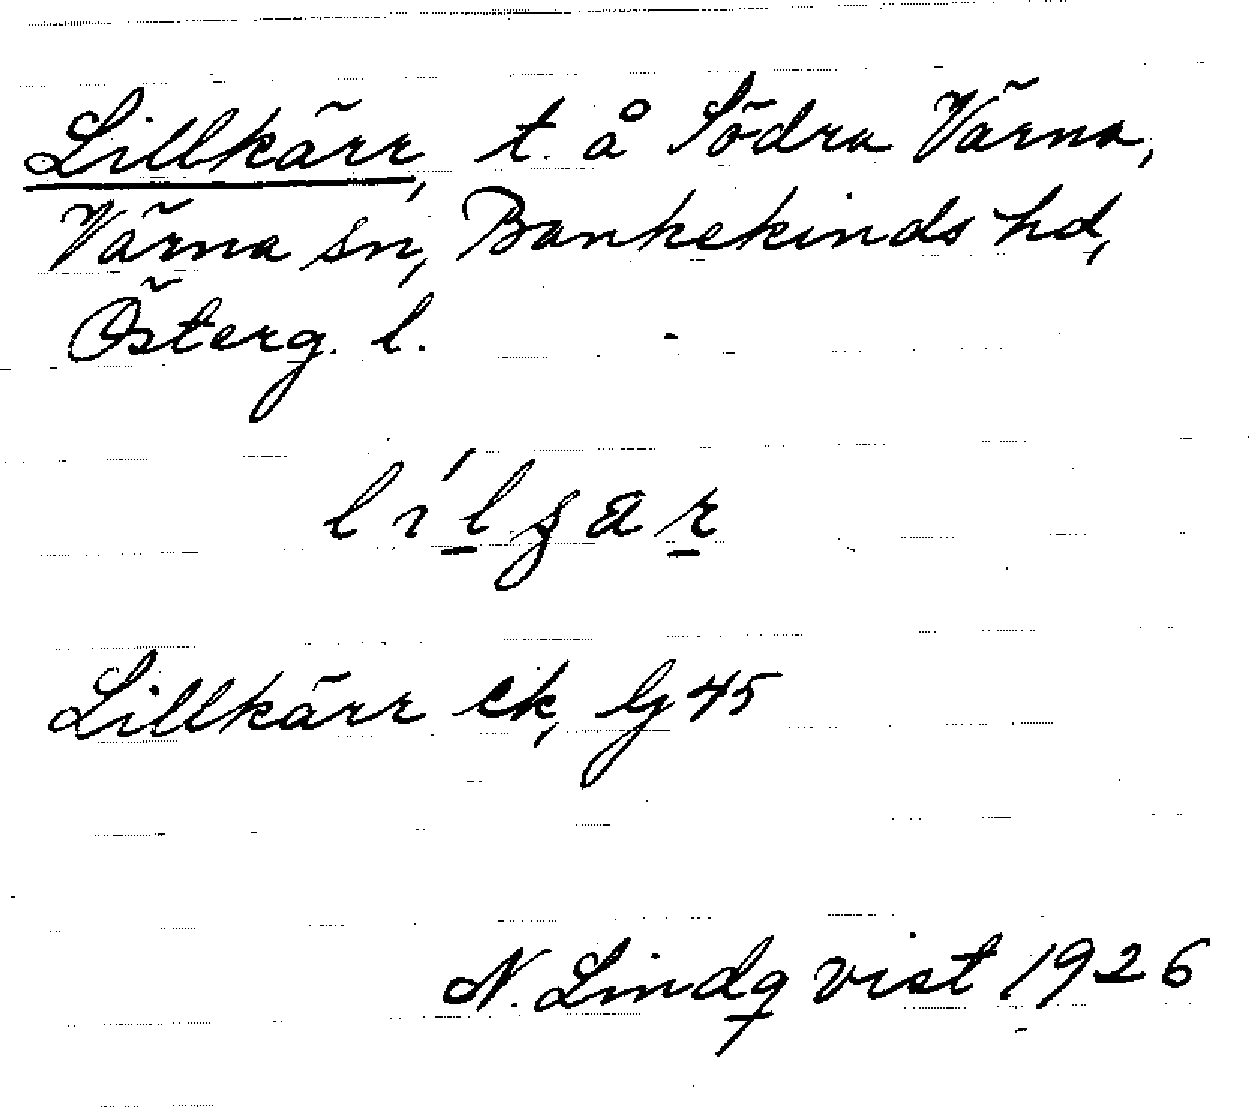 Lillkärr, t. å Södra Värna,
Värna sn, Bankekinds hd,
Österg. l.
Lillkärr ek, Gj 45
N. Lindqvist 1926